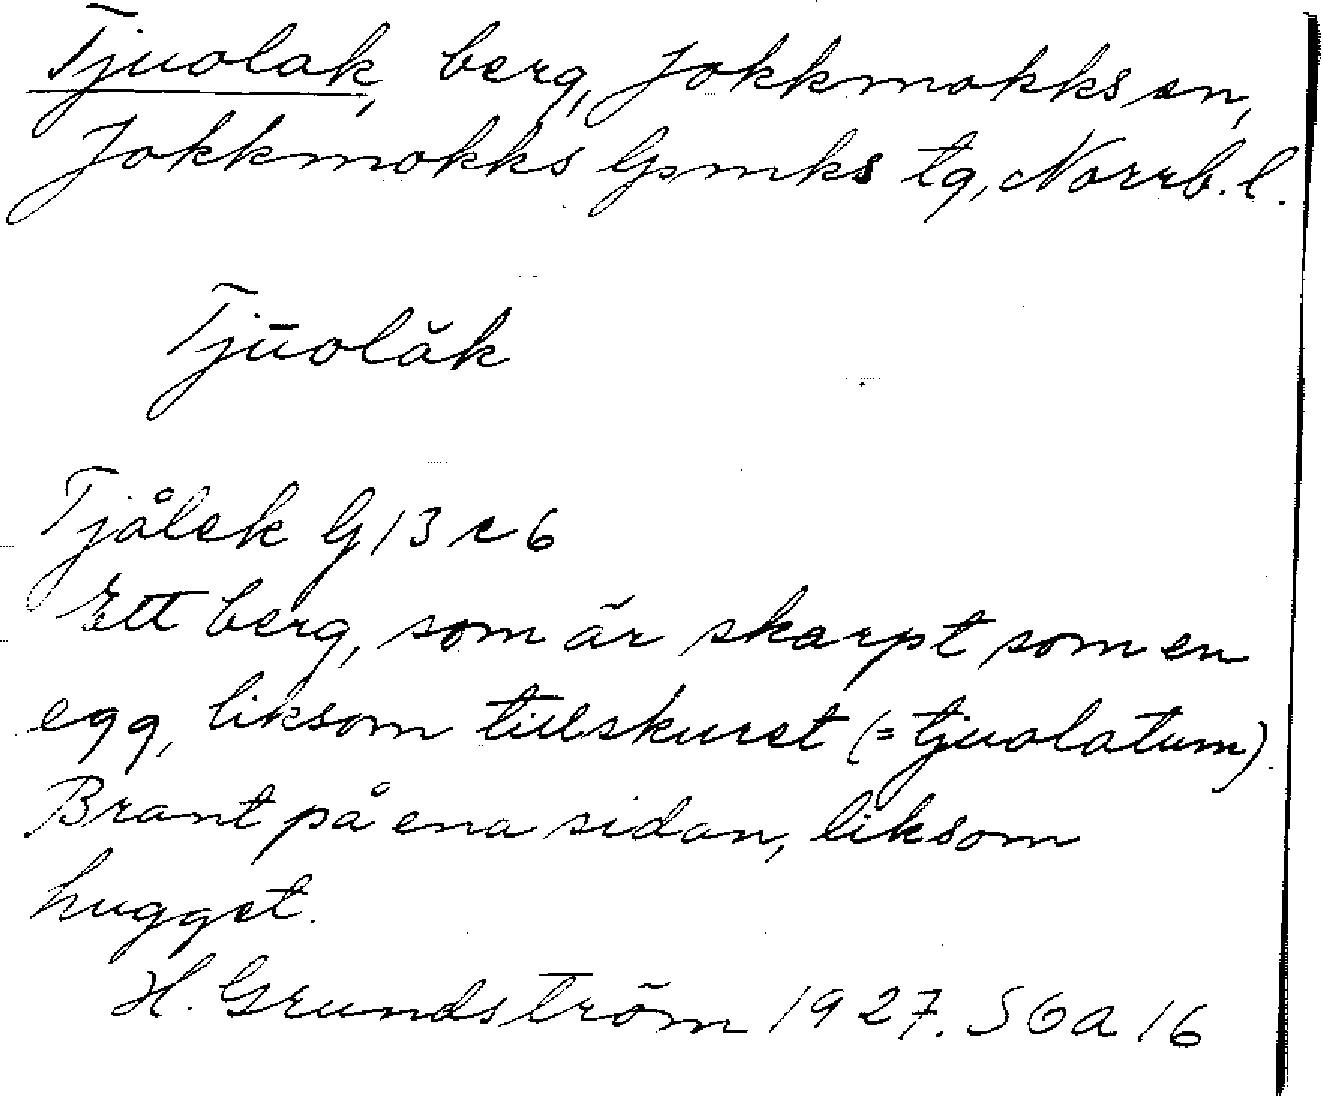 Tjuolak, berg, Jokkmokks sn,
Jokkmokks lpmks tg, Norrb. l.
Tjūolăk
Tjålek G 13 c 6
Ett berg, som är skarpt som en
egg, liksom tillskuret (= tjuolatum).
Brant på ena sidan, liksom
hugget.
H. Grundström 1927. S 6a 16